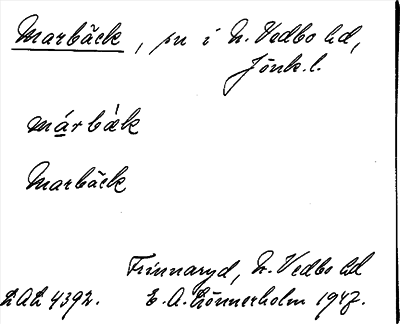 Marbäck, sn i N. Vedbo hd,
Jönk. l.
márbæ̀k
Marbäck
Frinnaryd, N. Vedbo hd
LAL 4392. E. A. Lönnerholm 1947.